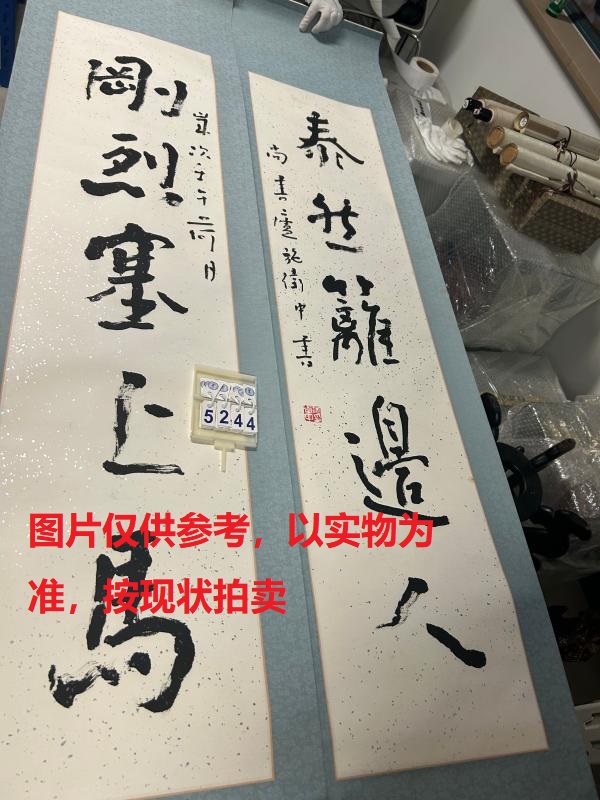 剛烈塞上馬
歲次壬午荷月
泰然籬邊人
尚書廬施衛中書
5244
图片仅供参考，以实物为
准，按现状拍卖